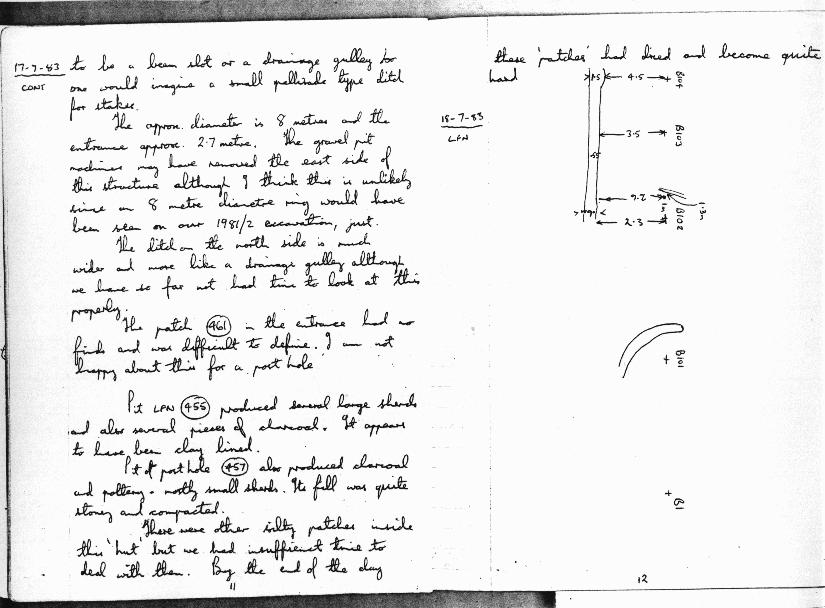 17-7-83
CONT
to be a beam slot or a drainage gulley for
one would imagine a small pallisade type ditch
for stakes.
The approx. diameter is 8 metres and the
entrance approx. 2.7 metre. The gravel pit
machines may have removed the east side of
this structure although I think this is unlikely
since an 8 metre diametre ring would have
been seen on our 1981/2 excavation, just.
The ditch on the north side is much
wider and more like a drainage gulley although
we have so far not had time to look at this
properly.
The patch 461 in the entrance had no
finds and was difficult to define. I am not
happy about this for a post hole
Pit LFN 455 produced several large sherds
and also several pieces of charcoal. It appears
to have been clay lined.
Pit or post hole 457 also produced charcoal
and pottery - mostly small sherds. Its fill was quite
stoney and compacted.
There were other silty patches inside
this 'hut' but we had insufficient time to
deal with them. By the end of the day
11
these 'patches' had dried and become quite
hard
18-7-83
LFN
4.5
B104
3.5
B103
2.6
1.3m
B102
2.3
B101
B1
12